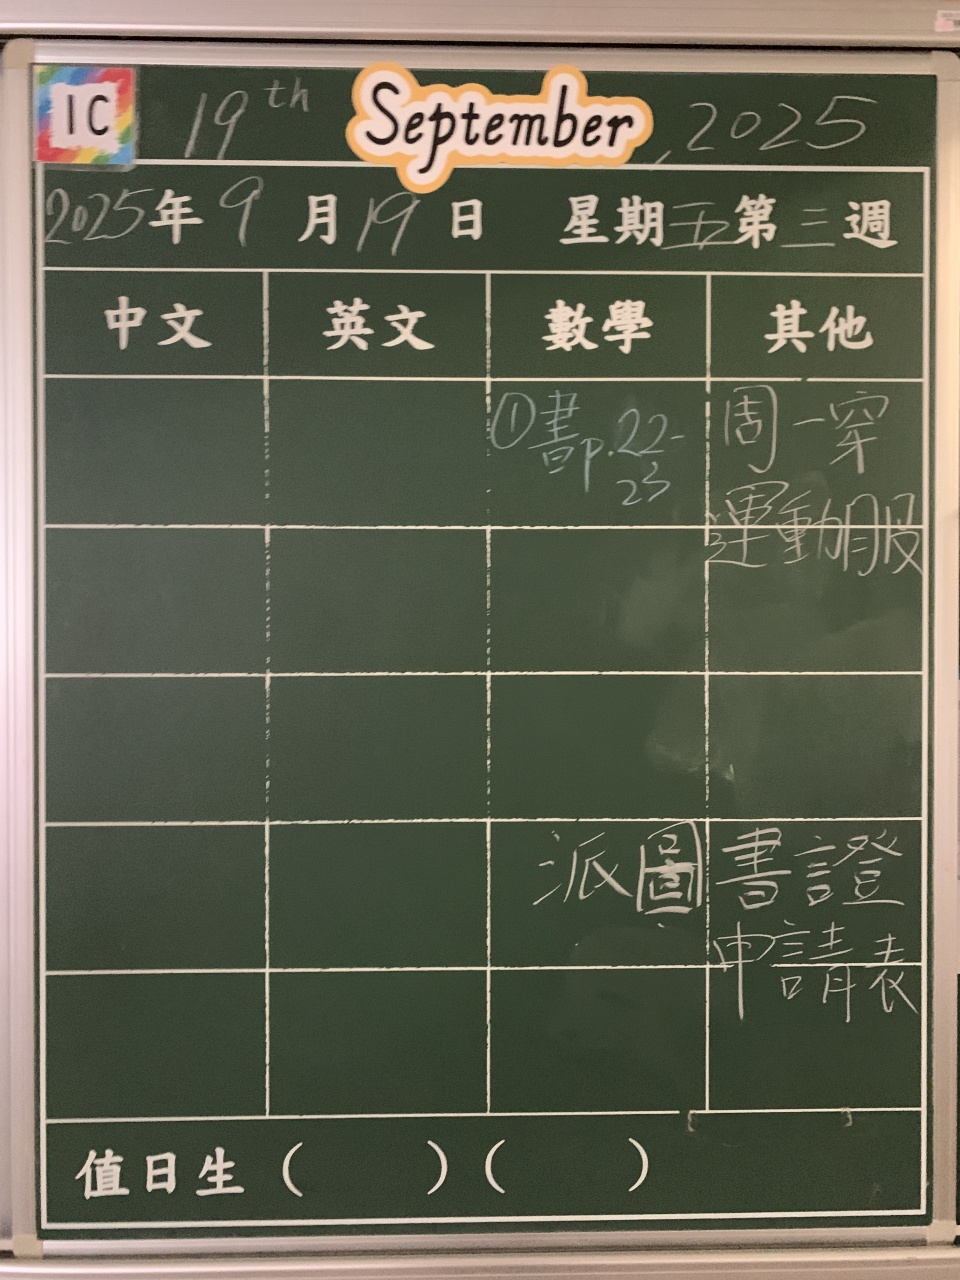 1C 19th September, 2025
2025年9月19日 星期五第三週
中文 英文 數學 其他
①書p.22-23
周一穿
運動服
派圖書證
申請表
值日生 ( ) ( )